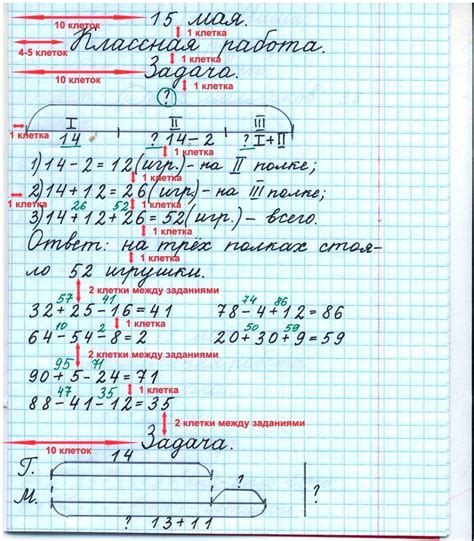 10 клеток 15 мая.
1 клетка
4-5 клеток Классная работа.
1 клетка
10 клеток Задача.
1 клетка
?
1 клетка I II III
14 ? 14-2 ? I+II
1) 14-2=12 (игр.) - на II полке;
1 клетка
1 клетка 2) 14+12=26 (игр.) - на III полке;
26 52 1 клетка
3) 14+12+26=52 (игр.) - всего.
1 клетка
Ответ: на трёх полках стоя-
1 клетка
ло 52 игрушки.
2 клетки между заданиями
57 41 74 86
32+25-16=41 78-4+12=86
10 2 1 клетка 50 59
64-54-8=2 20+30+9=59
2 клетки между заданиями
95 71
90+5-24=71
47 35 1 клетка
88-41-12=35
2 клетки между заданиями
10 клеток Задача.
14
Т.
?
М. ?
? 13+11